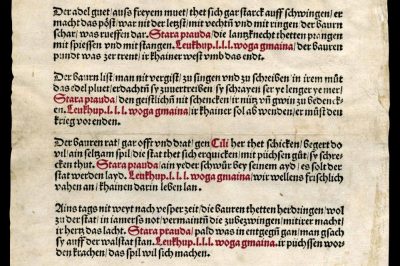 Der adel guet / auß freyem muet / thet sich gar starck auff schwingen / er
macht das pöst / war nit der letst / mit vechtñ vnd mit ringen / der baurn
schar / was rueffen dar. Stara prauda / die lantzknecht thetten prangen
mit spiessen vnd mit stangen. Leukhup.l.l.l. woga gmaina / der bauren
pundt / was zer trent / ir khainer west vmb das endt.
Der baurn list / man nit vergist / zu singen vnd zu schreiben / in irem můt
das edel pluet / erdachtñ sy zuuertreiben / sy schrayen ser ye lenger ye mer /
Stara prauda / den geistlichñ nit schencken / ir nutz vñ gwin zu bedenc-
ken. Leukhup.l.l.l. woga gmaina / ir khainer sol ab wenden / er můst den
krieg vor enden.
Der bauren rat / gar offt vnd drat / gen Cili her thet schicken / begert do
wil / ain selzam spil / die stat thet sich erquicken / mit püchsen güt / sy schre-
cken thut. Stara prauda / ain yeder schwür bey seinem ayd / es solt der
stat werden layd. Leukhup.l.l.l. woga gmaina / wir wellens frischlich
wahen an / khainen darin leben lan.
Ains tags nit weyt / nach vesper zeit / die bauren thetten herdringen / wol
zu der stat / in iamers not / vermaintñ die zubezwingen / mit irer macht /
ir hertz das lacht. Stara prauda / pald was in entgegñ gan / man gsach
sy auff der walstat stan. Leukhup.l.l.l. woga gmaina. ir püchssen wor-
den krachen / das spil wil sich machen.